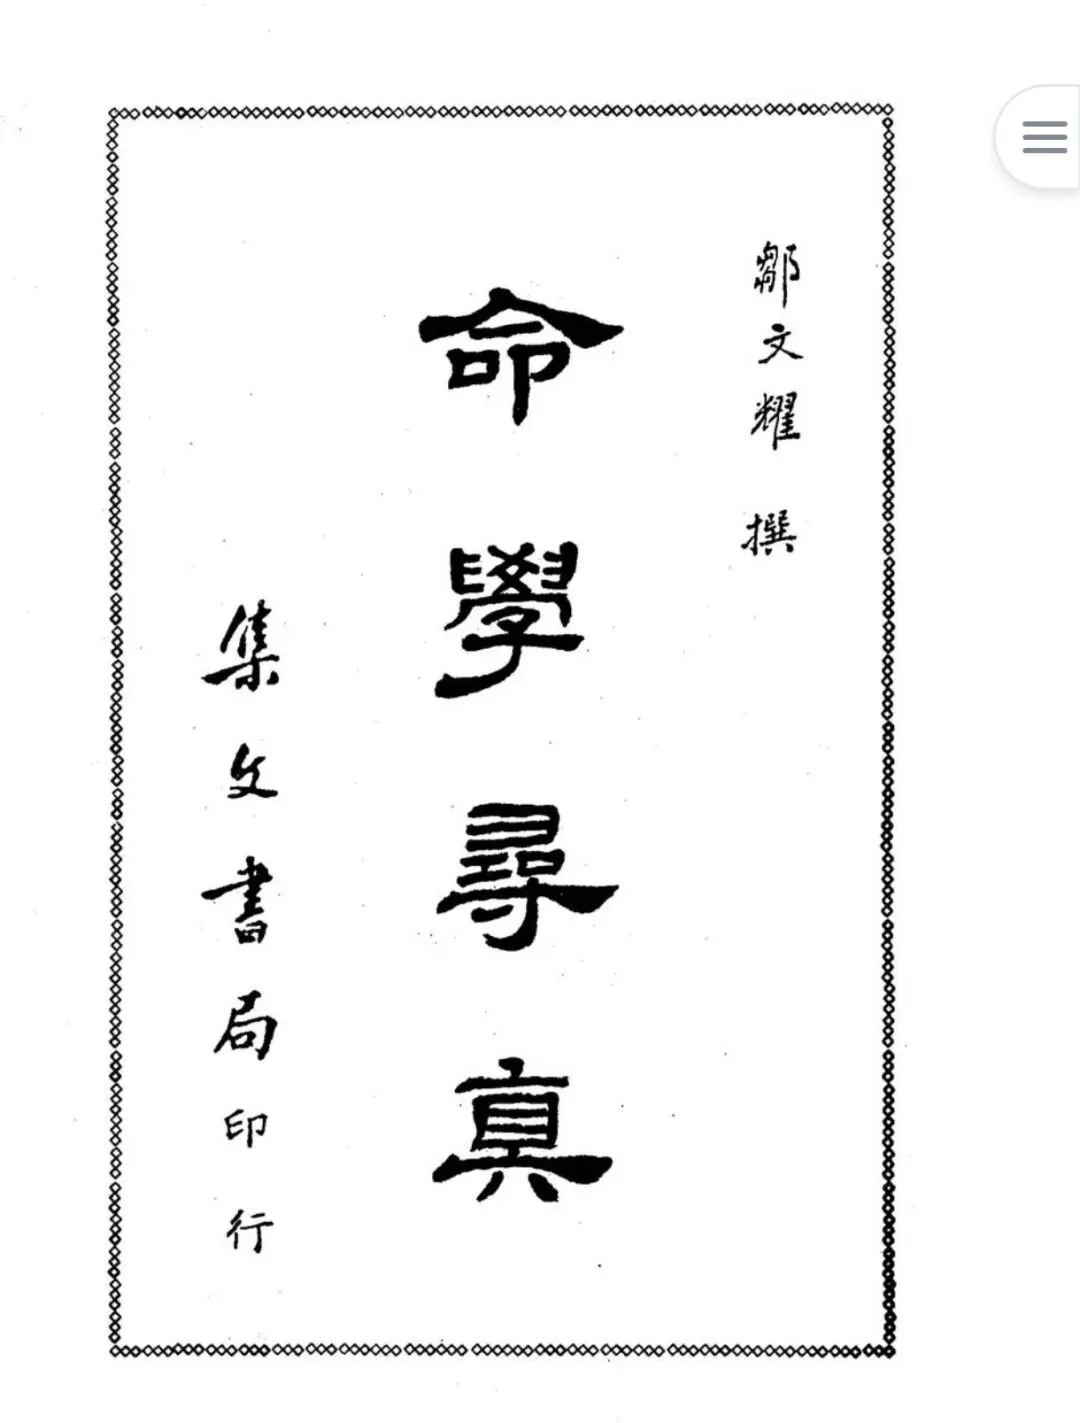 鄒文耀 撰
命學尋真
集文書局印行